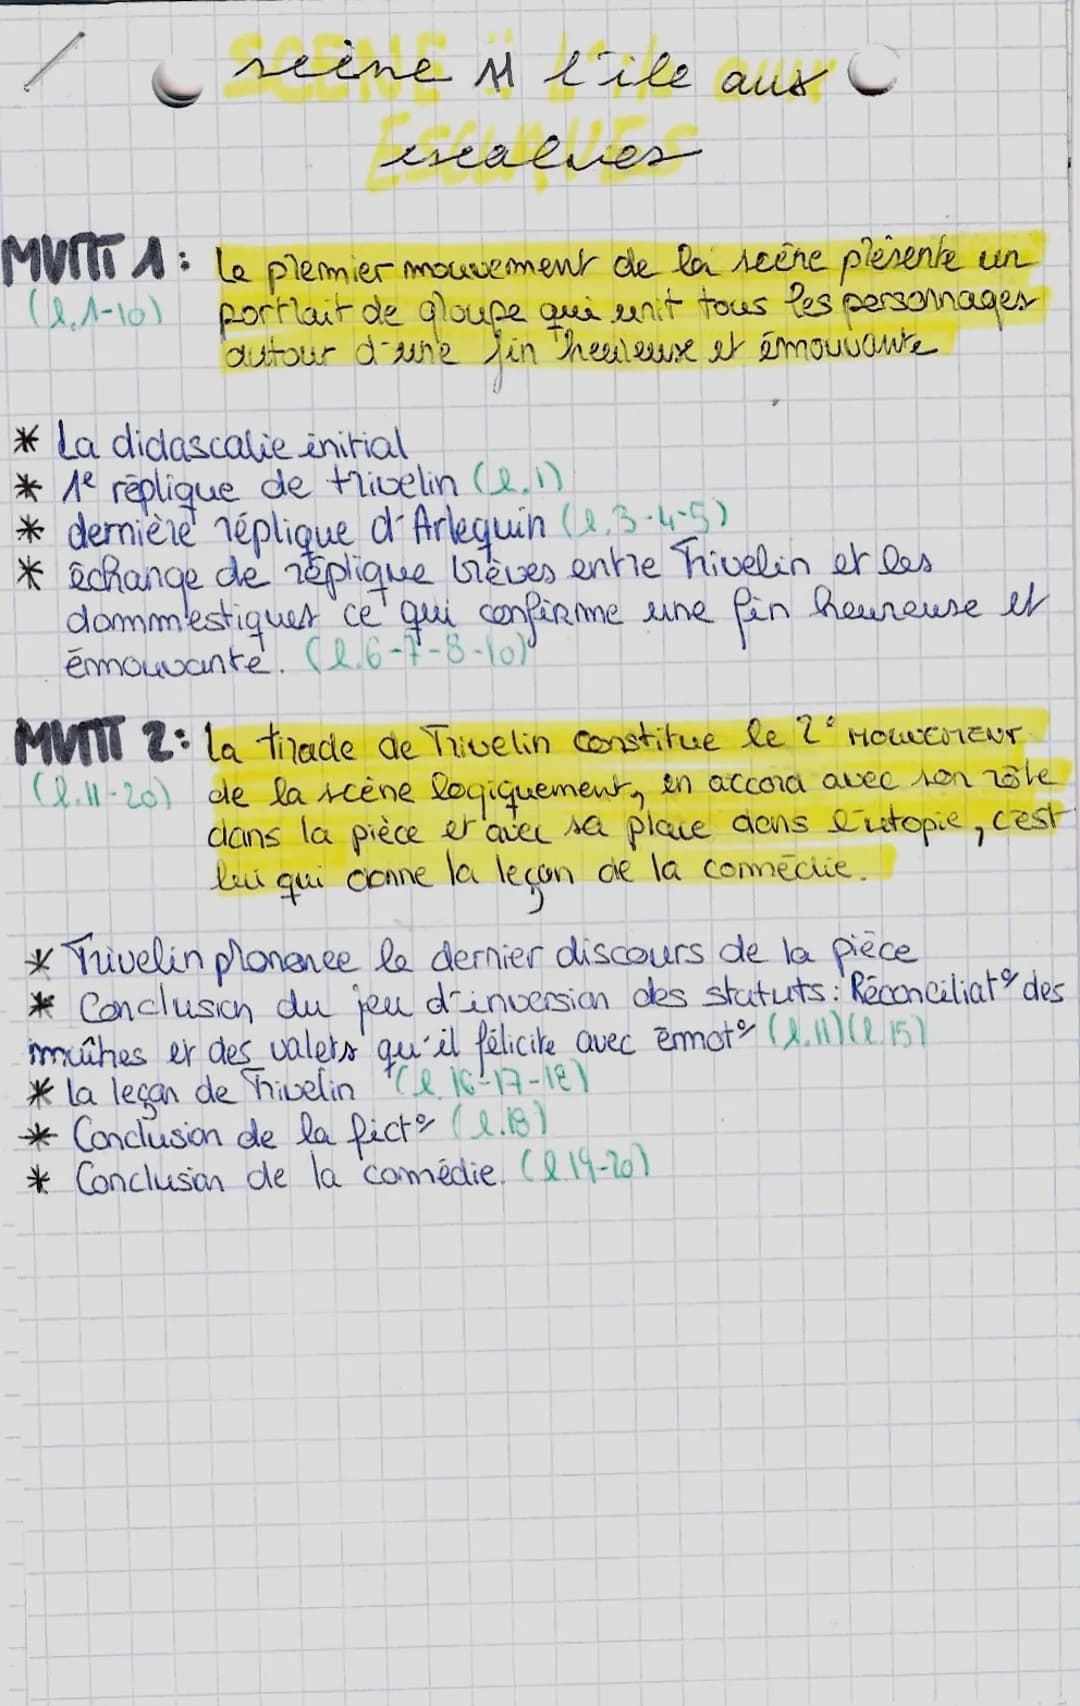 scène 11 l'ile aux
escalves
MVMT 1: Le premier mouvement de la scène présente un
(l.1-10) portrait de groupe qui unit tous les personnages
autour d'une fin heureuse et émouvante
* La didascalie initial
* 1e réplique de trivelin (l.1)
* dernière réplique d'Arlequin (l.3-4-5)
* échange de réplique brèves entre Trivelin et les
dommestiques ce qui confirme une fin heureuse et
émouvante. (l.6-7-8-10)
MVMT 2: La tirade de Trivelin constitue le 2e MOUVEMENT
(l.11-20) de la scène logiquement, en accord avec son rôle
dans la pièce et avec sa place dans l'utopie, c'est
lui qui donne la leçon de la comédie.
* Trivelin prononce le dernier discours de la pièce
* Conclusion du jeu d'inversion des statuts: Réconciliat° des
maîtres et des valets qu'il félicite avec émot° (l.11)(l.15)
* la leçon de Trivelin (l.16-17-18)
* Conclusion de la fict° (l.18)
* Conclusion de la comédie. (l.19-20)